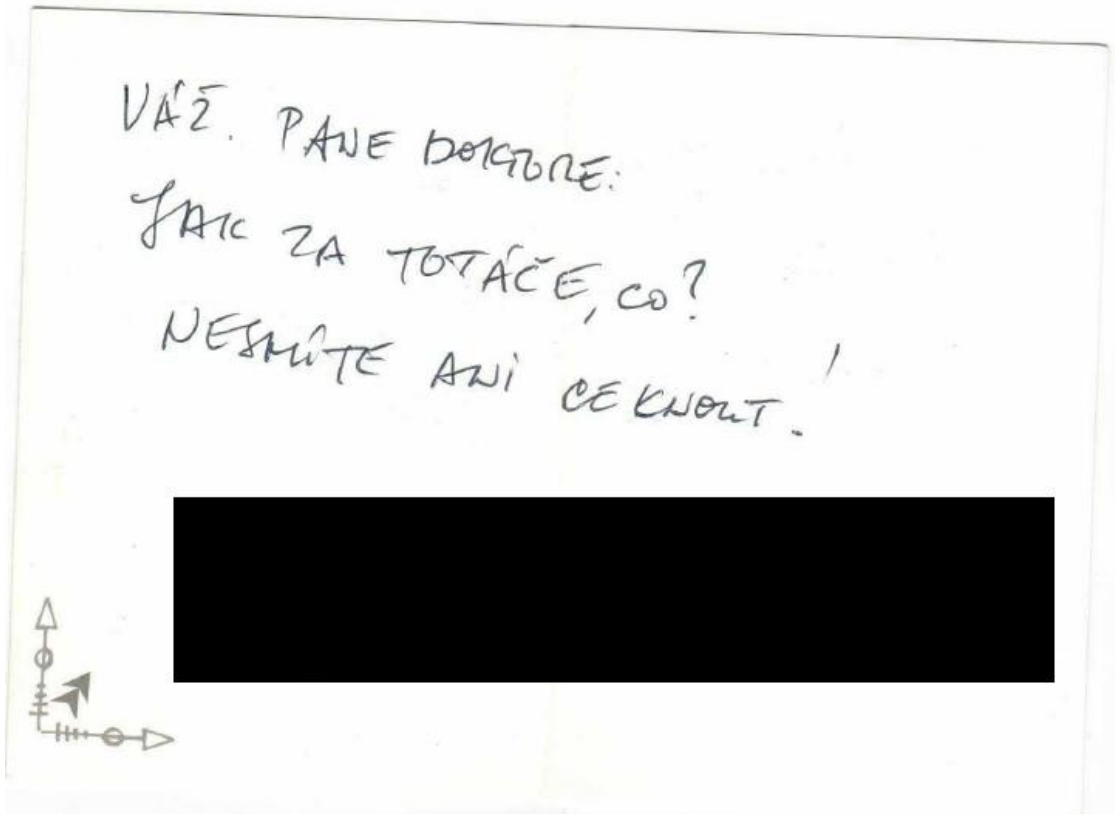 VÁŽ. PANE DOKTORE:
JAK ZA TOTÁČE, CO?
NESMÍTE ANI CEKNOUT!